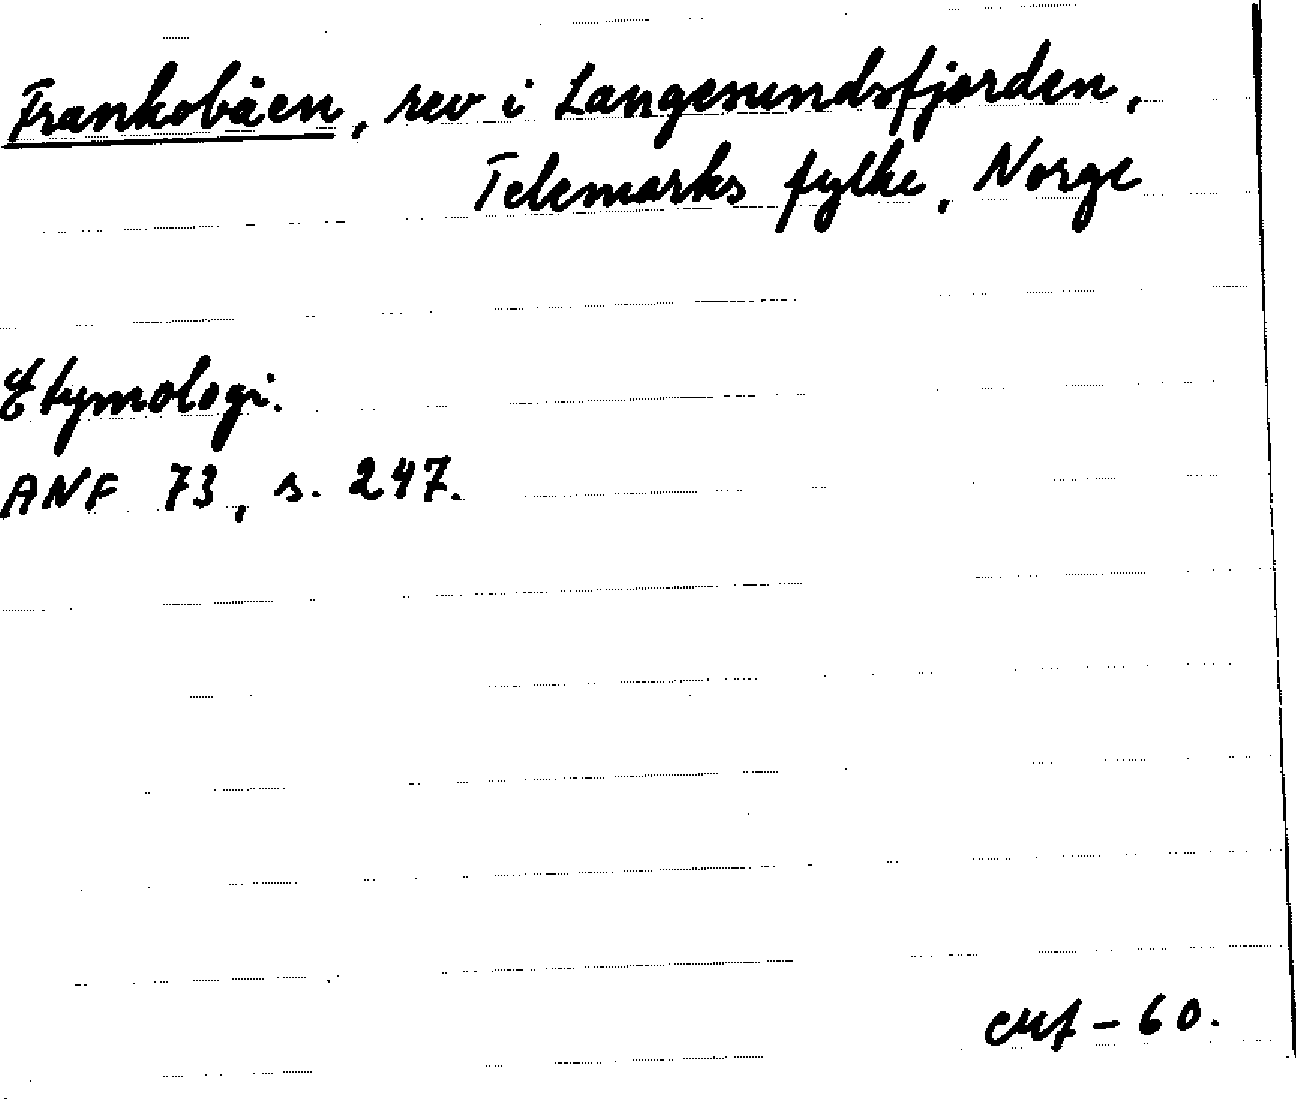 Frankobåen, rev i Langesundsfjorden,
Telemarks fylke, Norge
Etymologi.
ANF 73, s. 247.
- 60.